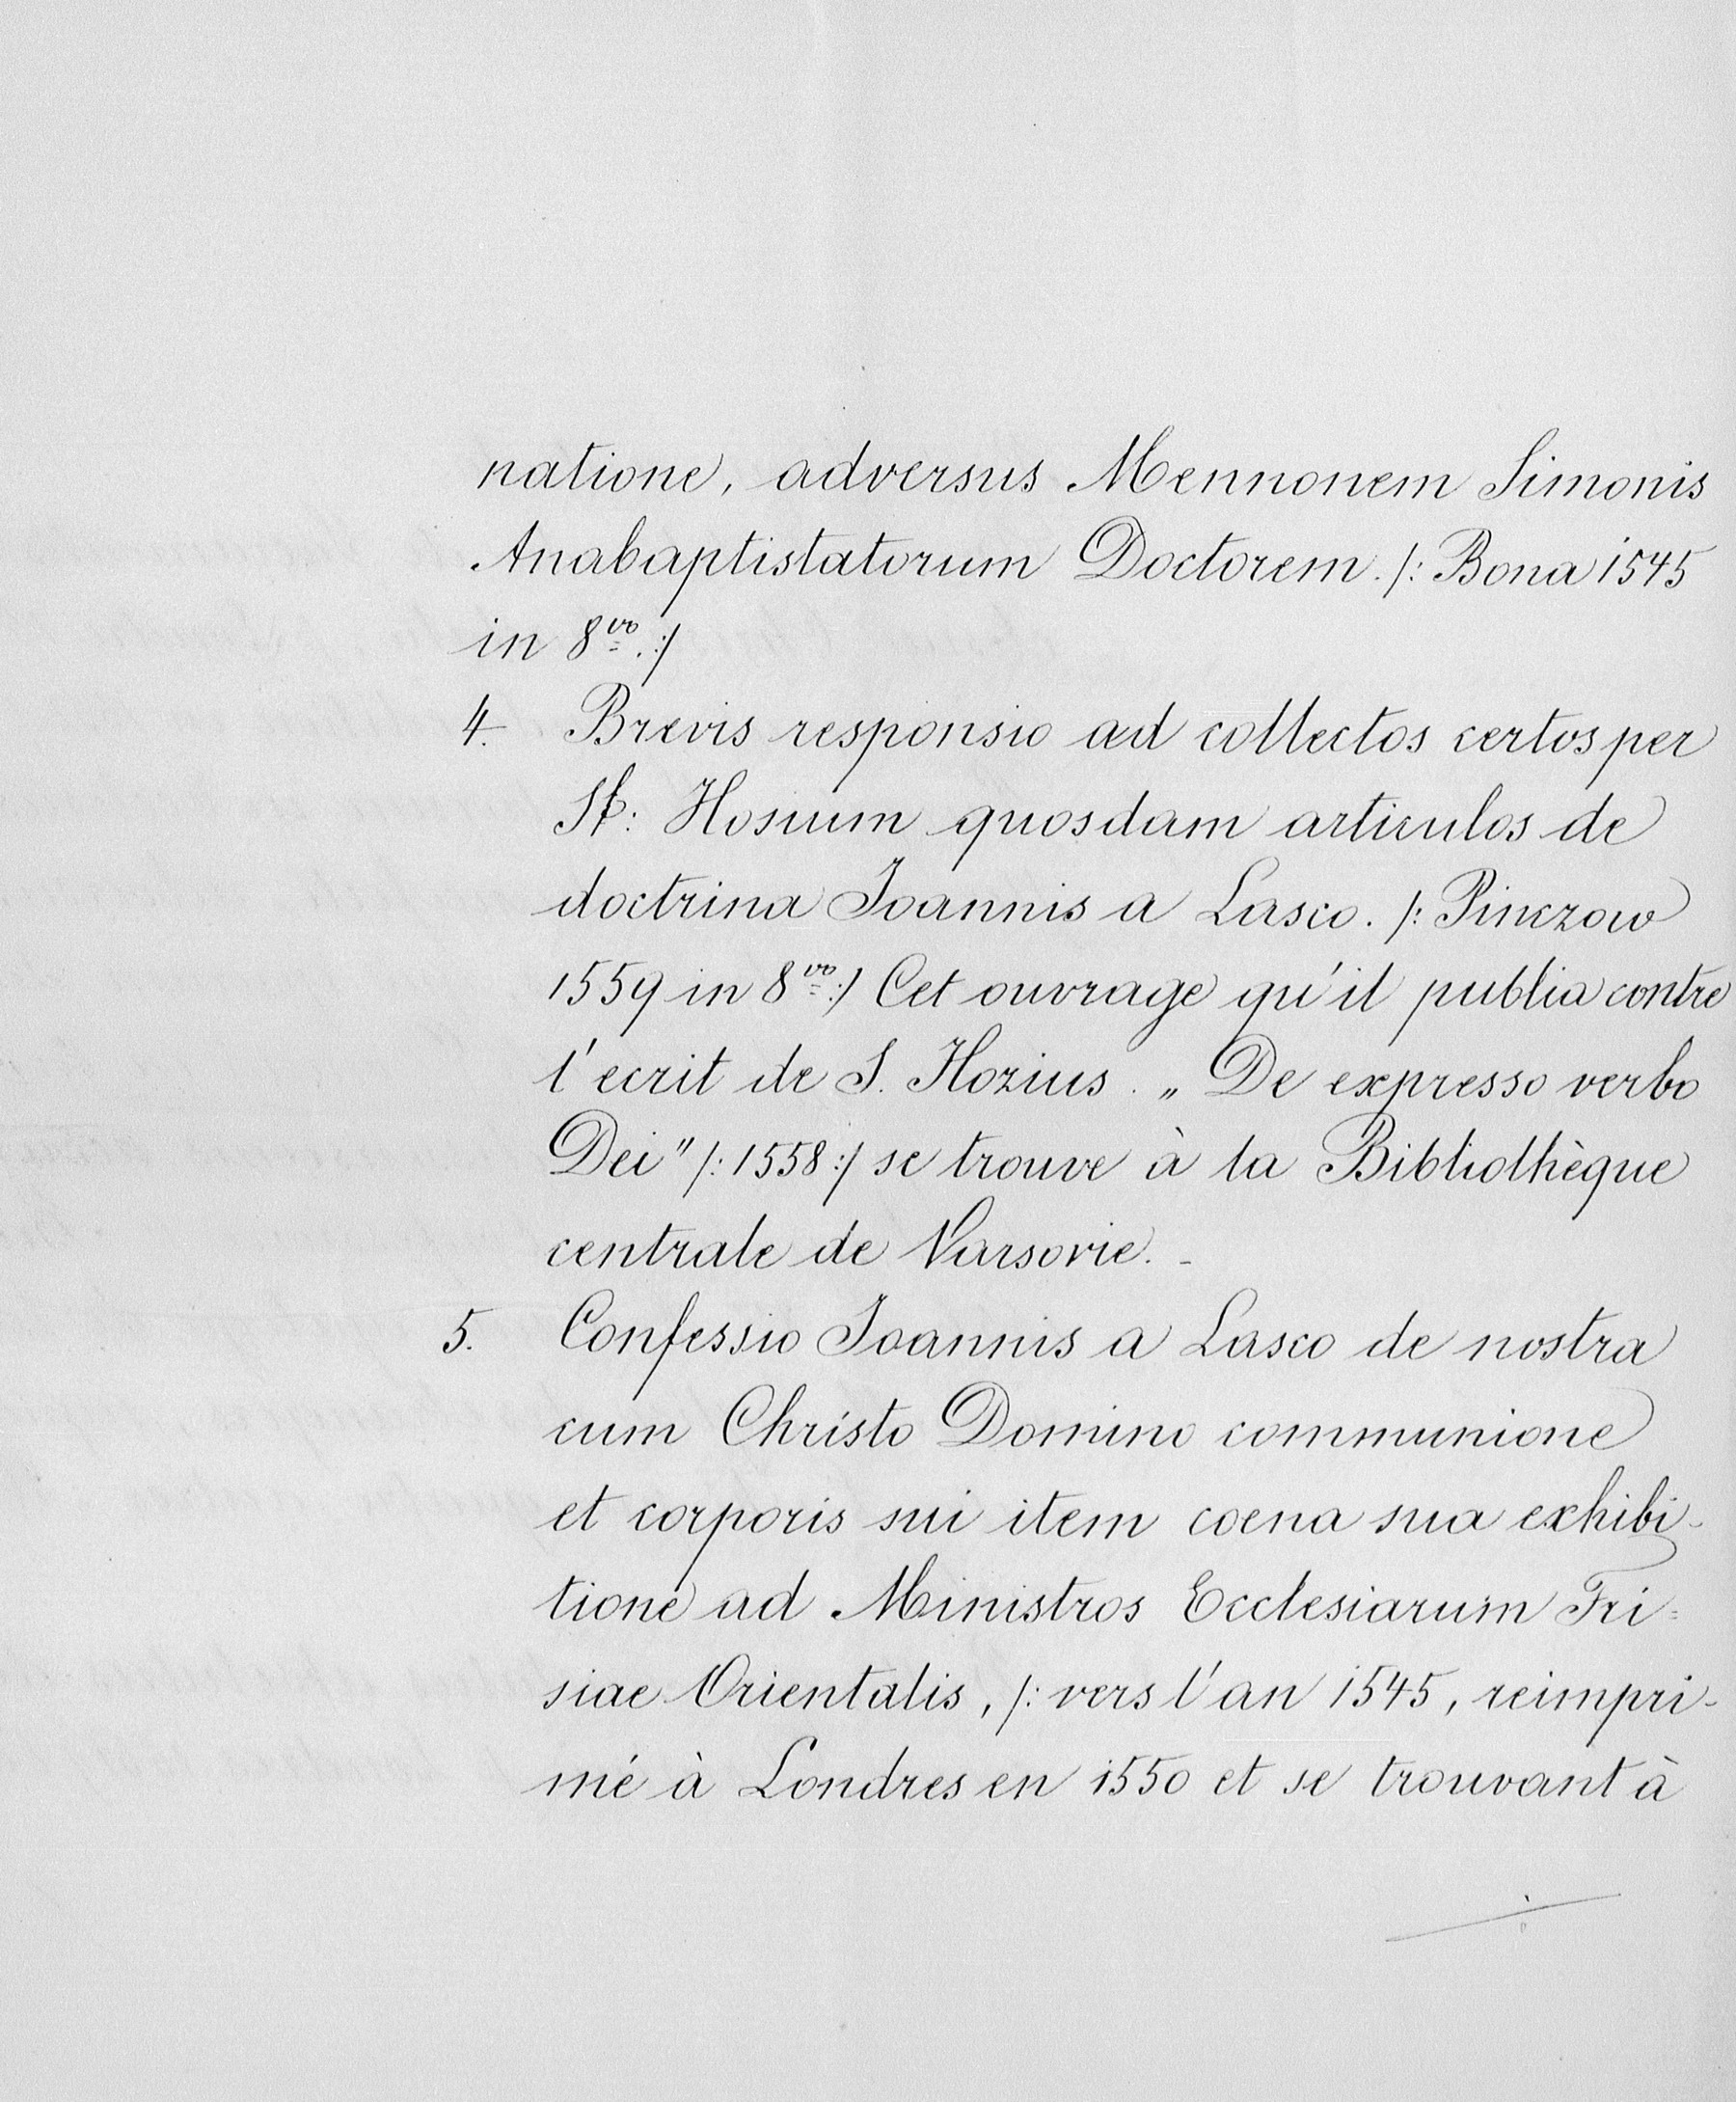 natione, adversus Mennonem Simonis
Anabaptistatorum Doctorem. /: Bona 1545
in 8vo. :/
4. Brevis responsio ad collectos certos per
St: Hosium quosdam articulos de
doctrina Joannis a Lasco. /: Pinczow
1559 in 8vo :/ Cet ouvrage qu'il publia contre
l'ecrit de S. Hozius. „ De expresso verbo
Dei" /: 1558 :/ se trouve à la Bibliothèque
centrale de Varsovie. -
5. Confessio Joannis a Lasco de nostra
cum Christo Domino communione
et corporis sui item coena sua exhibi-
tione ad Ministros Ecclesiarum Fri=
siae Orientalis, /: vers l'an 1545, reimpri-
mé à Londres en 1550 et se trouvant à